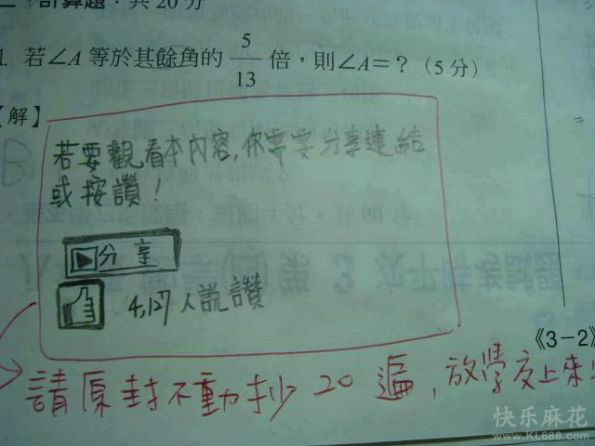 二、計算題：共 20 分
1. 若∠A 等於其餘角的 5/13 倍，則∠A=？（5 分）
【解】
若要觀看本內容，你需要分享連結
或按讚！
▶分享
4,127人說讚
《3－2》
請原封不動抄 20 遍，放學交上來
快乐麻花
www.KL688.com